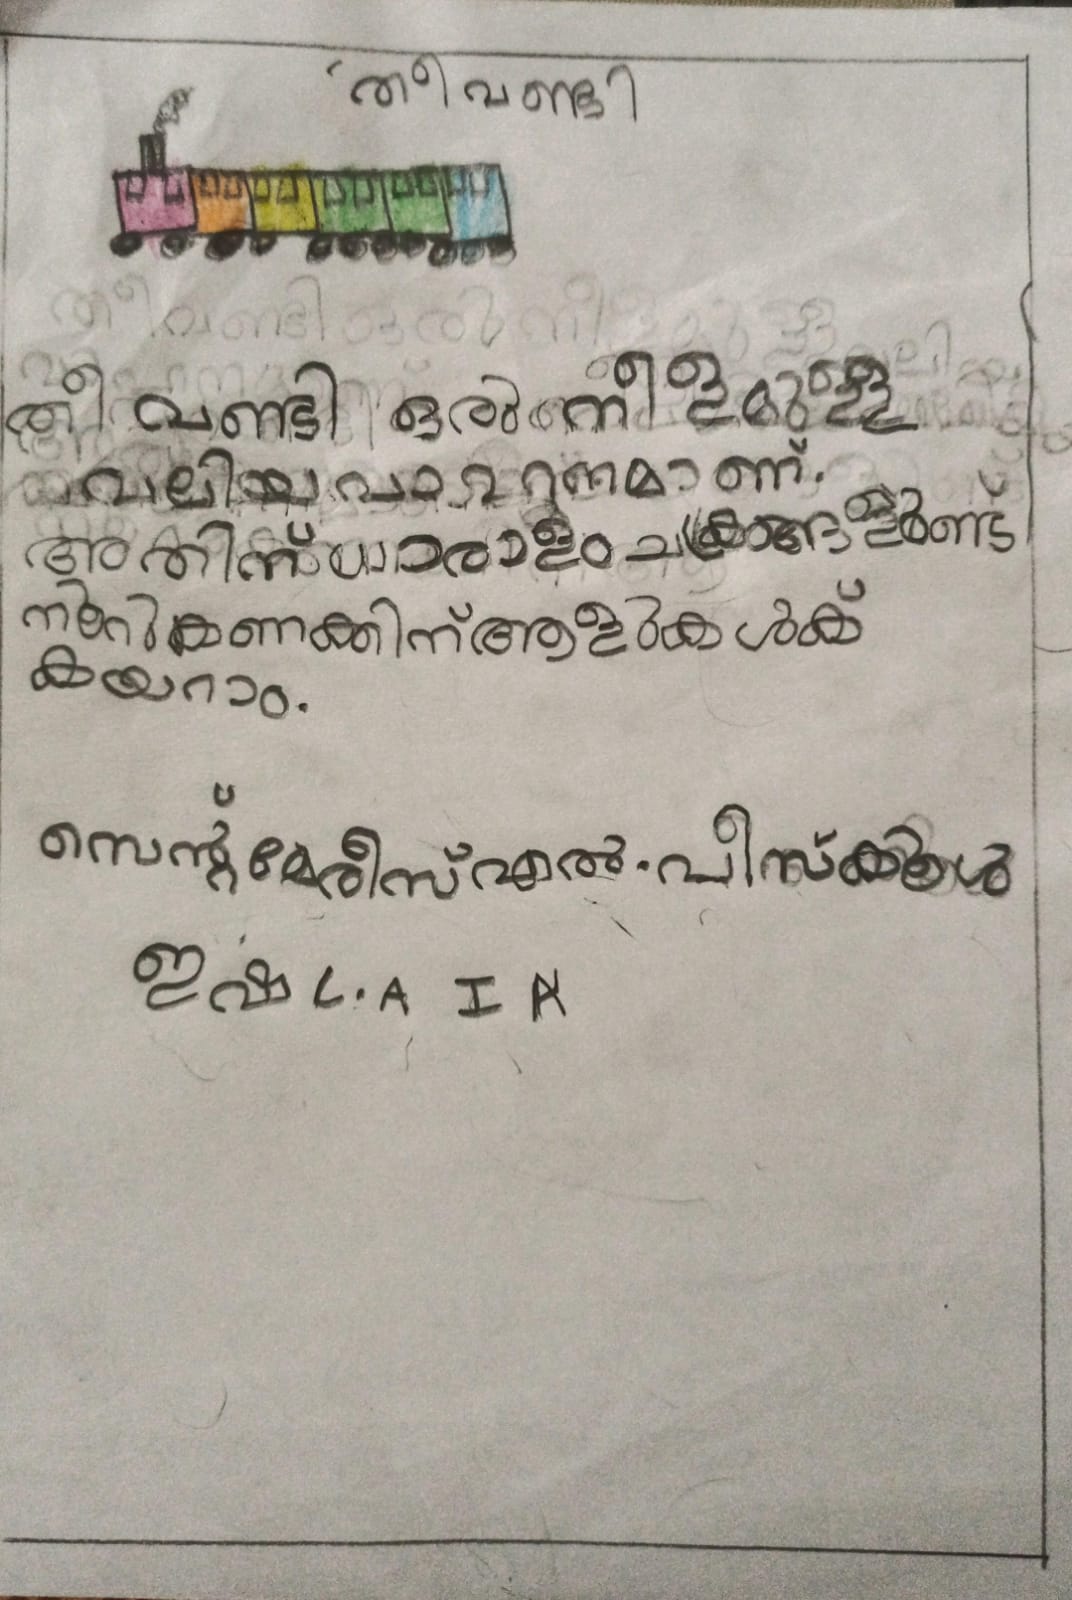 തീവണ്ടി
തീവണ്ടി ഒരു നീളമുള്ള
വലിയ വാഹനമാണ്.
അതിന് ധാരാളം ചക്രങ്ങളുണ്ട്
നൂറുകണക്കിന് ആളുകൾക്ക്
കയറാം.
സെന്റ് മേരീസ് എൽ.പി സ്കൂൾ
ഇഷ L.A I